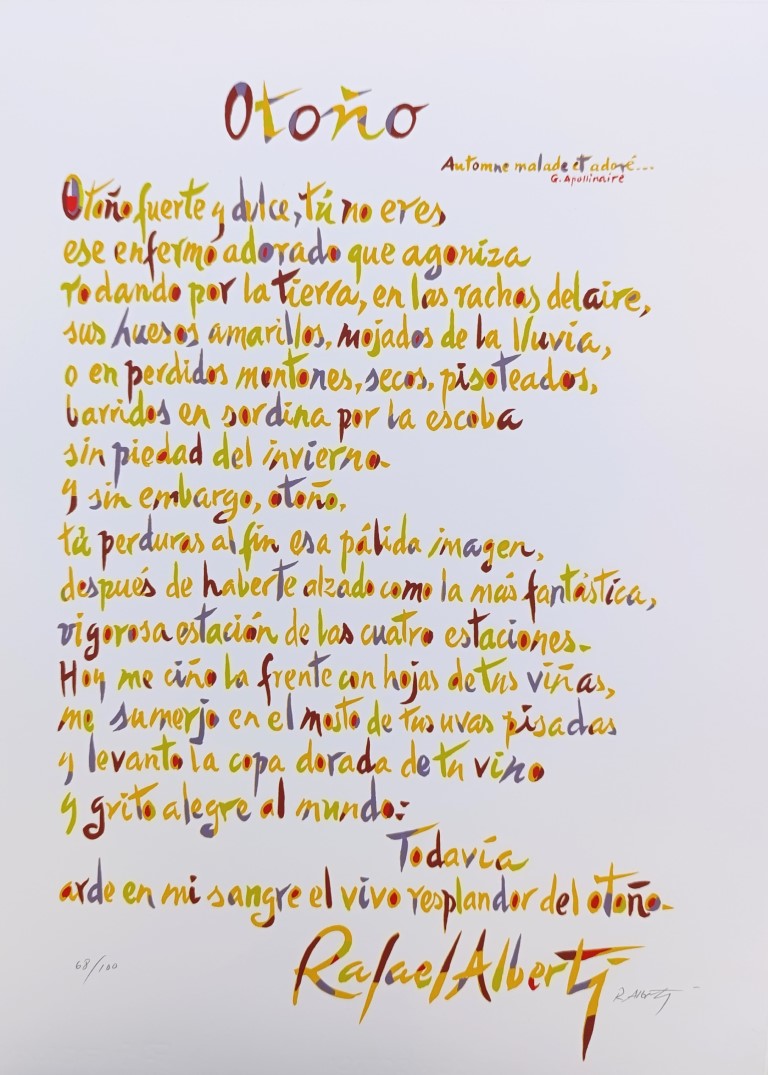 Otoño
Automne malade et adoré...
G. Apollinaire
Otoño fuerte y dulce, tú no eres
ese enfermo adorado que agoniza
rodando por la tierra, en las rachas del aire,
sus huesos amarillos, mojados de la lluvia,
o en perdidos montones, secos, pisoteados,
barridos en sordina por la escoba
sin piedad del invierno.
Y sin embargo, otoño,
tú perduras al fin esa pálida imagen,
después de haberte alzado como la más fantástica,
vigorosa estación de las cuatro estaciones.
Hoy me ciño la frente con hojas de tus viñas,
me sumerjo en el mosto de tus uvas pisadas
y levanto la copa dorada de tu vino
y grito alegre al mundo:
Todavía
arde en mi sangre el vivo resplandor del otoño.
Rafael Alberti
68/100
R. Alberti